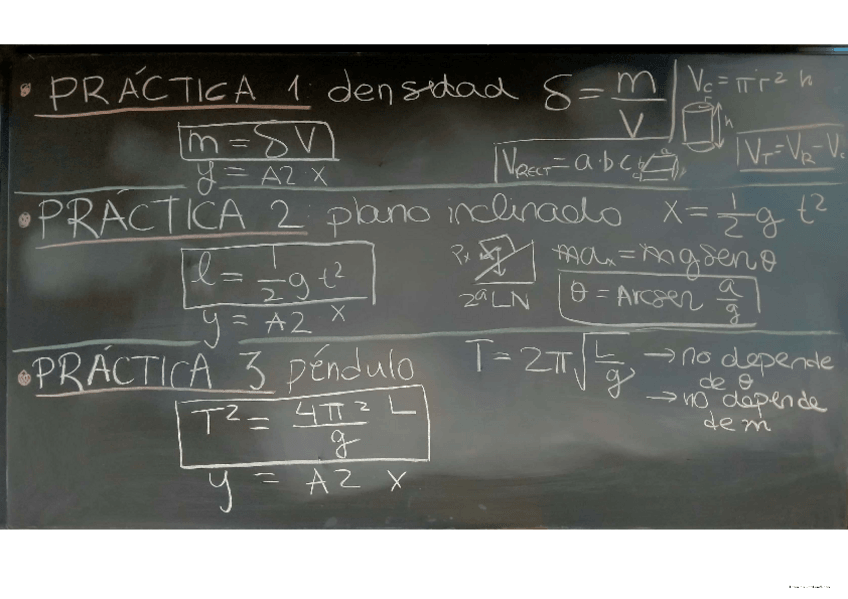 • PRÁCTICA 1 densidad δ = m/V
Vc = πr² h
h
m = δ V
y = A2 x
VRECT = a·b·c
VT = VR - Vc
• PRÁCTICA 2 plano inclinado x = 1/2 g t²
l = 1/2 g t²
y = A2 x
Px
2ª LN
max = mg sen θ
θ = Arcsen a/g
• PRÁCTICA 3 péndulo
T = 2π√L/g → no depende
de θ
→ no depende
de m
T² = 4π²/g L
y = A2 x